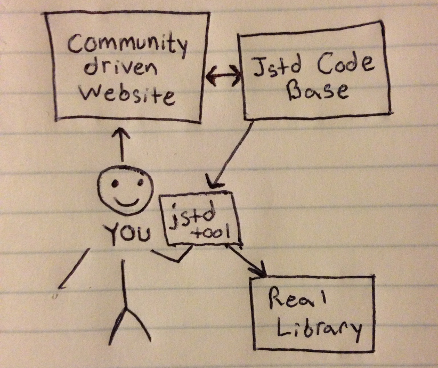 Community
driven
Website
Jstd Code
Base
YOU
jstd
tool
Real
Library